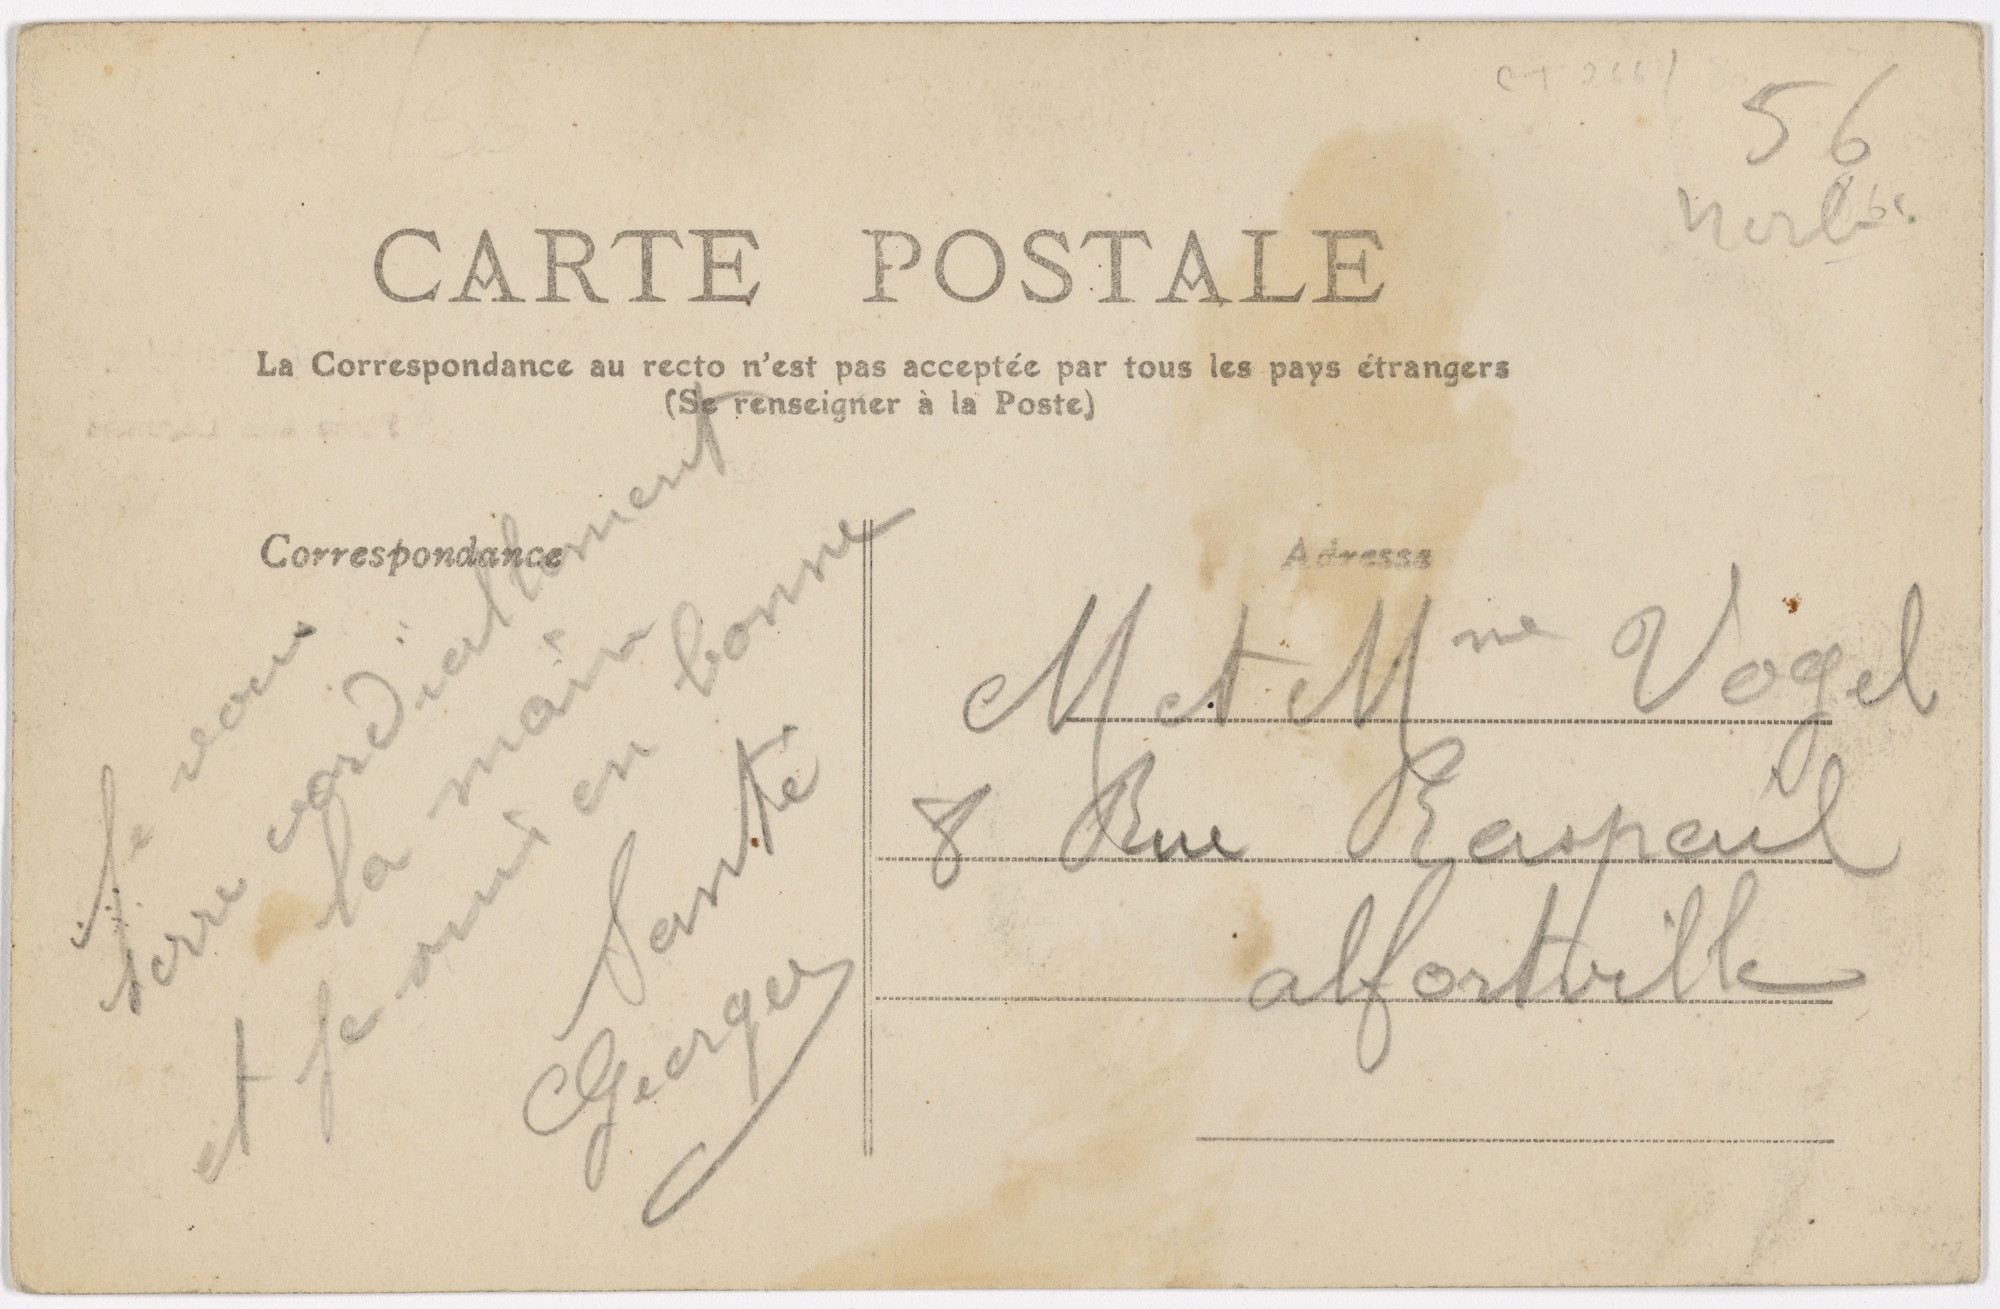 56
CARTE POSTALE
La Correspondance au recto n'est pas acceptée par tous les pays étrangers
(Se renseigner à la Poste)
Correspondance
Je vous
serre cordiallement
la main
et je suis en bonne
Santé
Georges
Adresse
M et Mme Vogel
8 Rue Raspail
alfortville